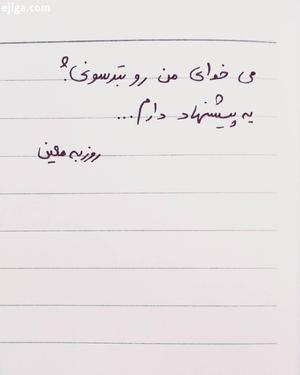 ejiga.com
می خوای من رو بترسونی؟!
یه پیشنهاد دارم...
روزبه معین